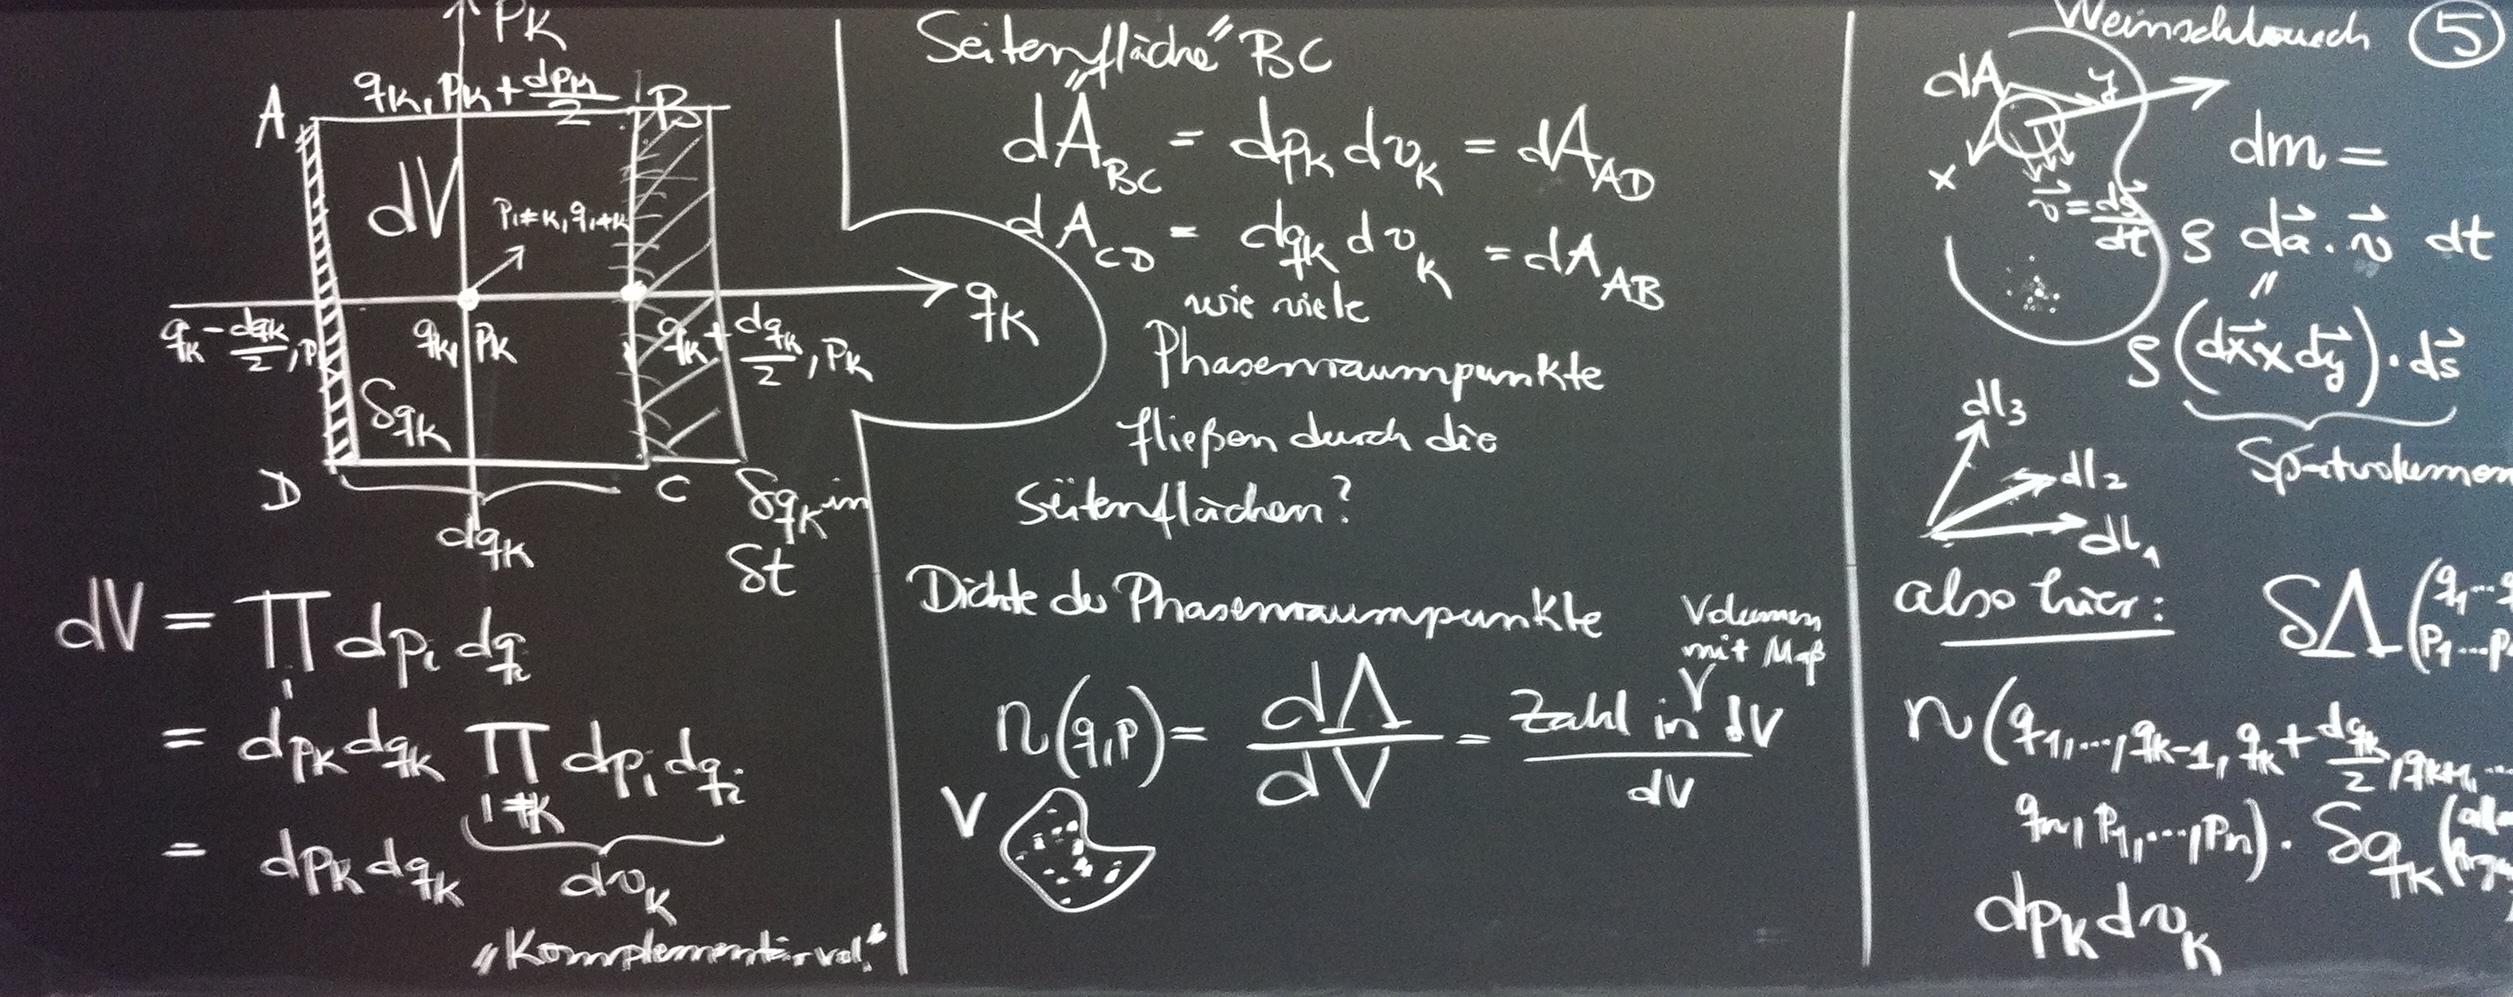 p_K
q_K, p_K + dp_K/2
A
B
dV
p_{i≠K}, q_{i≠K}
q_K
q_K - dq_K/2, p
q_K, p_K
q_K + dq_K/2, p_K
δq_K
D
C
δq_K in
δt
dq_K
dV = ∏_i dp_i dq_i
= dp_K dq_K ∏_{i≠K} dp_i dq_i
= dp_K dq_K dv_K
„Komplementärvol."
„Seitenfläche" BC
dA_BC = dp_K dv_K = dA_AD
dA_CD = dq_K dv_K = dA_AB
wie viele
Phasenraumpunkte
fließen durch die
Seitenflächen?
Dichte der Phasenraumpunkte
Volumen
mit Maß
n(q,p) = dΛ/dV = Zahl in V dV / dV
V
Weinschlauch ⑤
dA
y
x
v⃗ = ds⃗/dt
dm =
ρ da⃗ · v⃗ dt
=
ρ (dx⃗ × dy⃗) · ds⃗
Spatvolumen
dl_3
dl_2
dl_1
also hier: δΛ (q_1...q
p_1...p
n(q_1,...,q_{K-1}, q_K + dq_K/2, q_{K+1},...
q_n, p_1,...,p_n) · δq_K (
dp_K dv_K